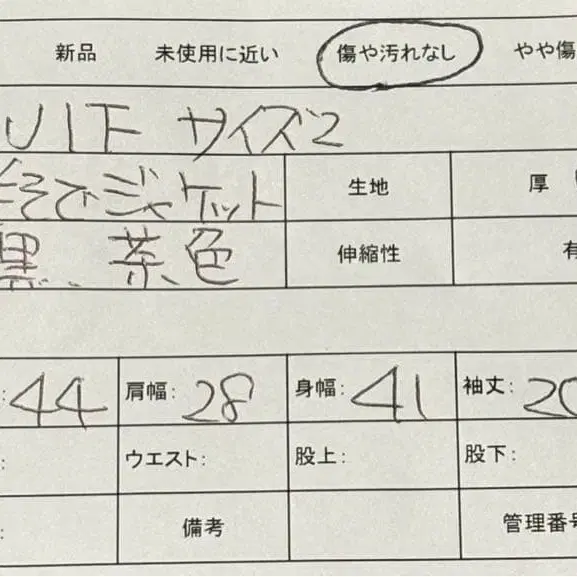 新品 未使用に近い 傷や汚れなし やや傷
サイズ2
そでジャケット 生地 厚
黒、茶色 伸縮性 有
: 44 肩幅: 28 身幅: 41 袖丈: 20
: ウエスト: 股上: 股下:
: 備考 管理番号